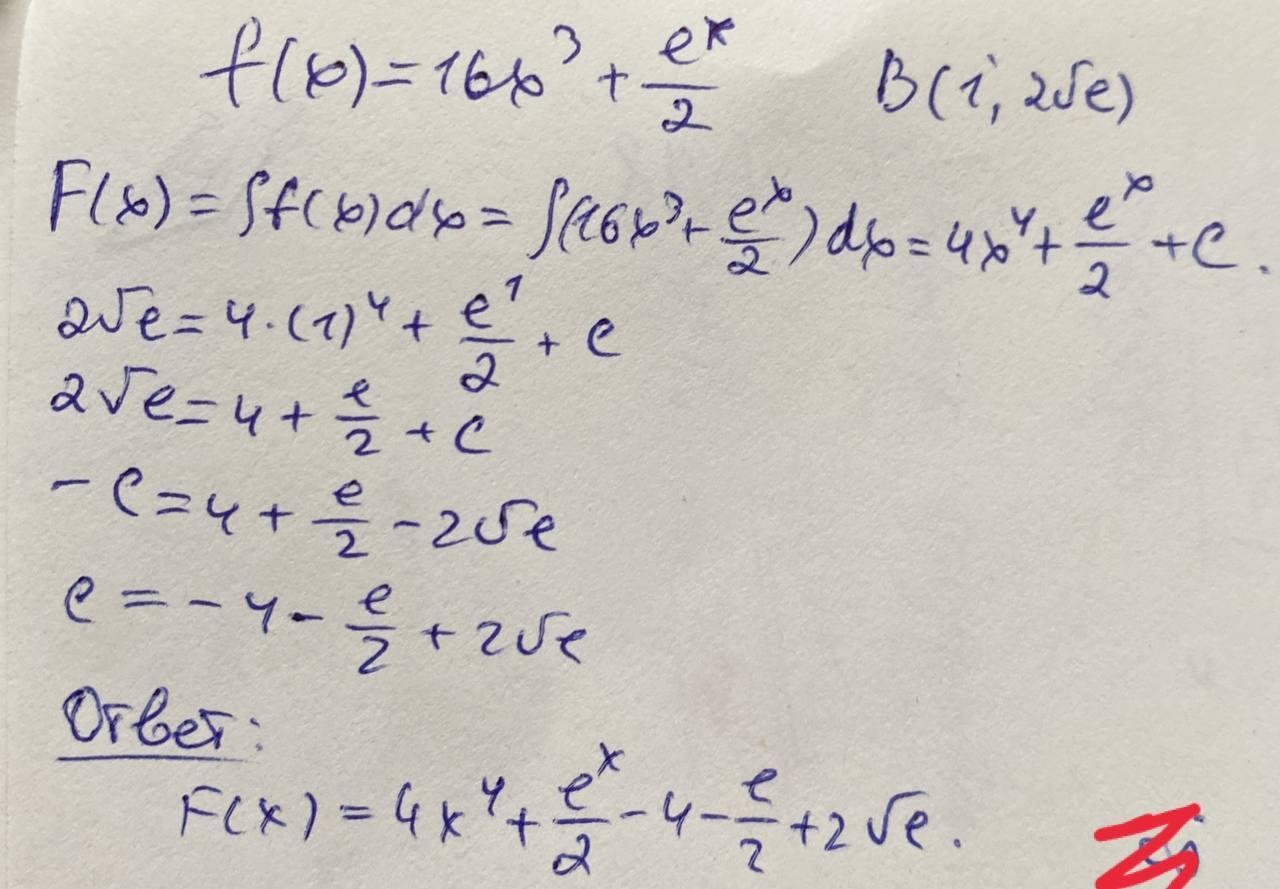 f(x) = 16x³ + eˣ/2 B(1; 2√e)
F(x) = ∫f(x)dx = ∫(16x³ + eˣ/2)dx = 4x⁴ + eˣ/2 + C.
2√e = 4·(1)⁴ + e¹/2 + C
2√e = 4 + e/2 + C
- C = 4 + e/2 - 2√e
C = - 4 - e/2 + 2√e
Ответ:
F(x) = 4x⁴ + eˣ/2 - 4 - e/2 + 2√e.